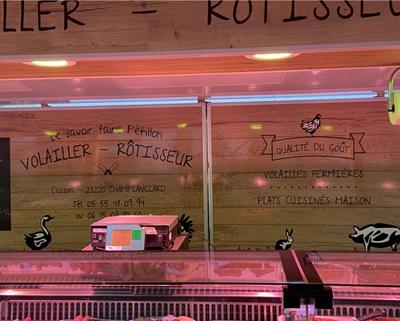 LLER - RÔTISSEU
Le savoir faire Pétillon
VOLAILLER - RÔTISSEUR
23220 CHAMPSANGLARD
Tél 05 55 47 09 94
ou 06
QUALITÉ DU GOÛT
VOLAILLES FERMIÈRES
PLATS CUISINÉS MAISON